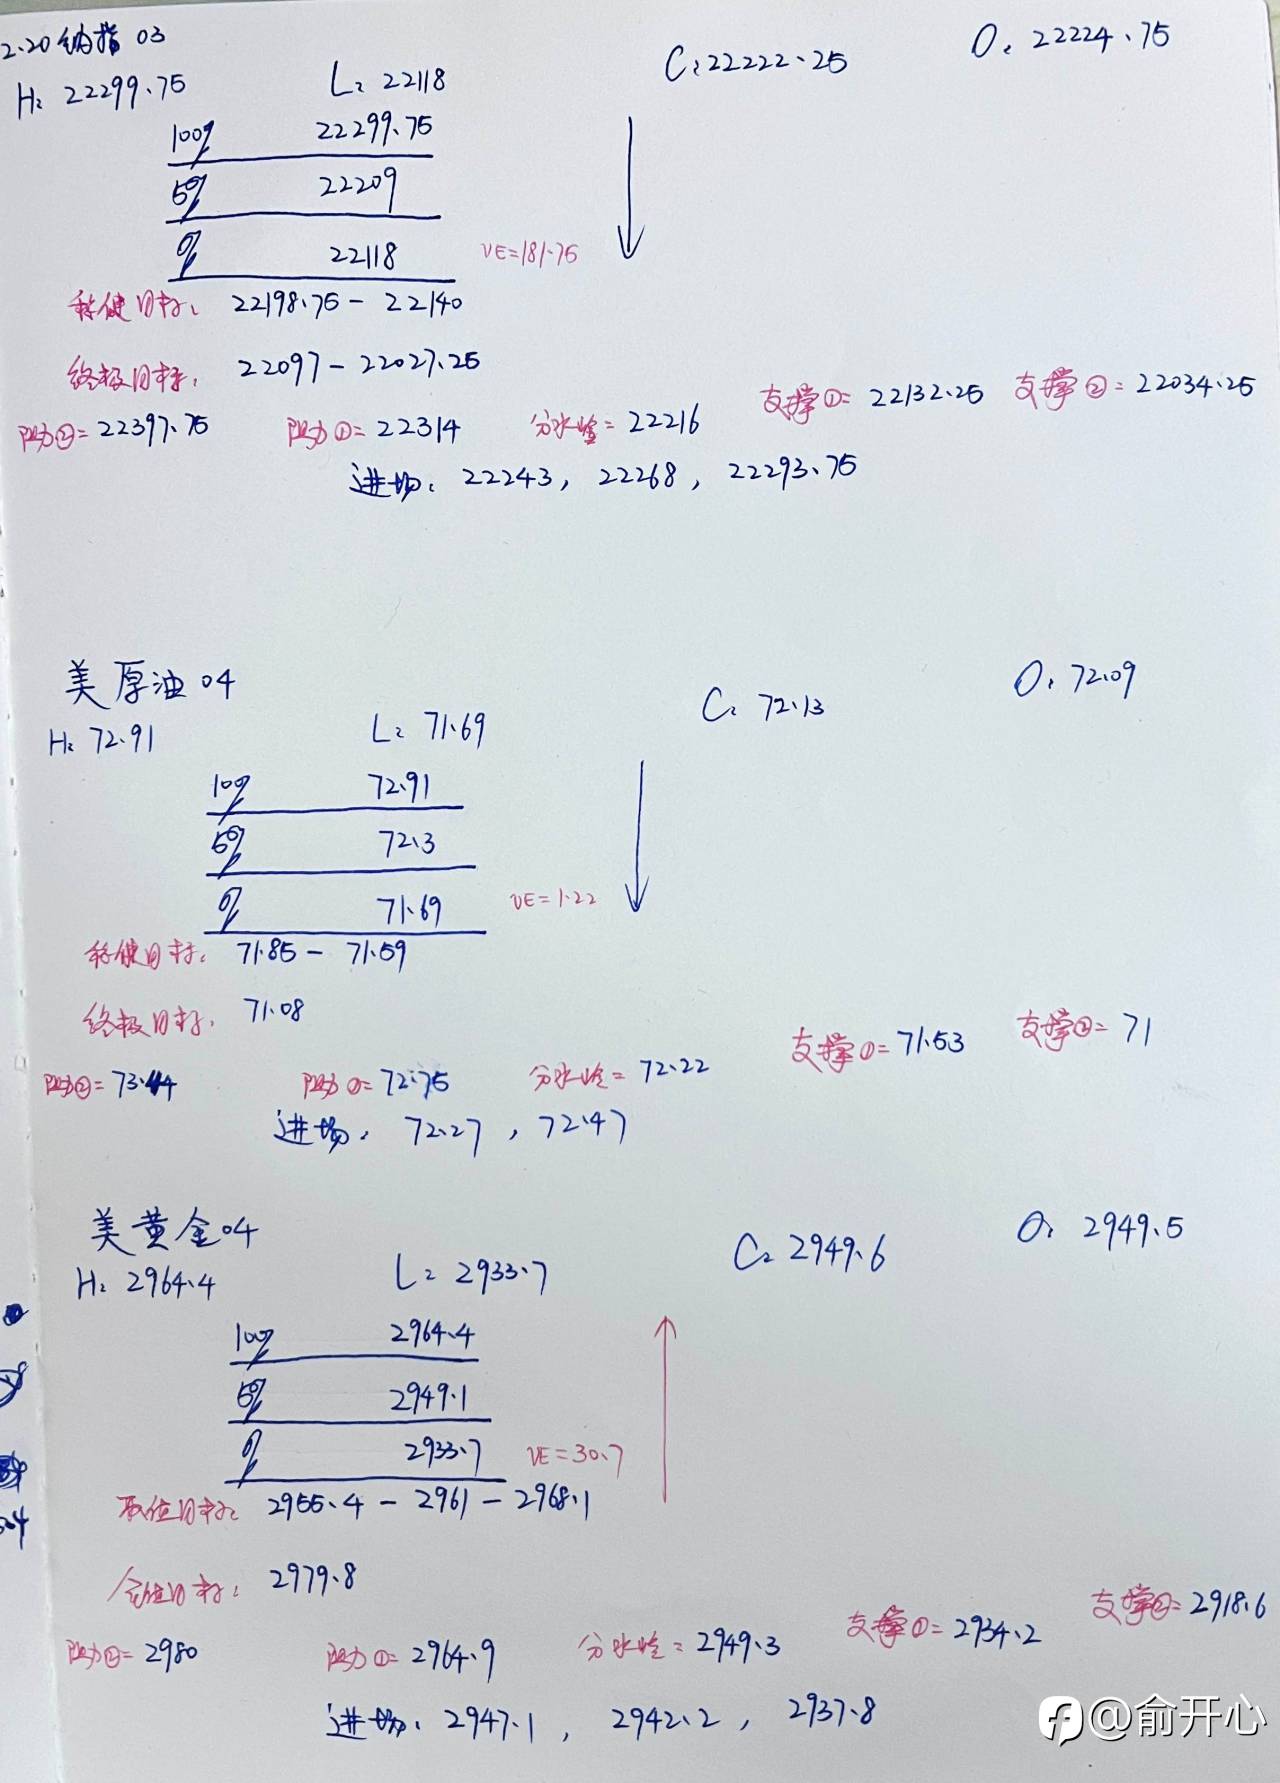 2.20 纳指 03
H: 22299.75 L: 22118 C: 22222.25 O: 22224.75
100% 22299.75
50% 22209
0% 22118 VE=181.75
稳健目标: 22198.75 - 22140
终极目标: 22097 - 22027.25
阻力②=22397.75 阻力①=22314 分水岭=22216 支撑①=22132.25 支撑②=22034.25
进场: 22243, 22268, 22293.75
美原油04
H: 72.91 L: 71.69 C: 72.13 O: 72.09
100% 72.91
50% 72.3
0% 71.69 VE=1.22
稳健目标: 71.85 - 71.59
终极目标: 71.08
阻力②=73.44 阻力①=72.75 分水岭=72.22 支撑①=71.53 支撑②=71
进场: 72.27, 72.47
美黄金04
H: 2964.4 L: 2933.7 C: 2949.6 O: 2949.5
100% 2964.4
50% 2949.1
0% 2933.7 VE=30.7
目标: 2955.4 - 2961 - 2968.1
目标: 2979.8
阻力②=2980 阻力①=2964.9 分水岭=2949.3 支撑①=2934.2 支撑②=2918.6
进场: 2947.1, 2942.2, 2937.8
@俞开心